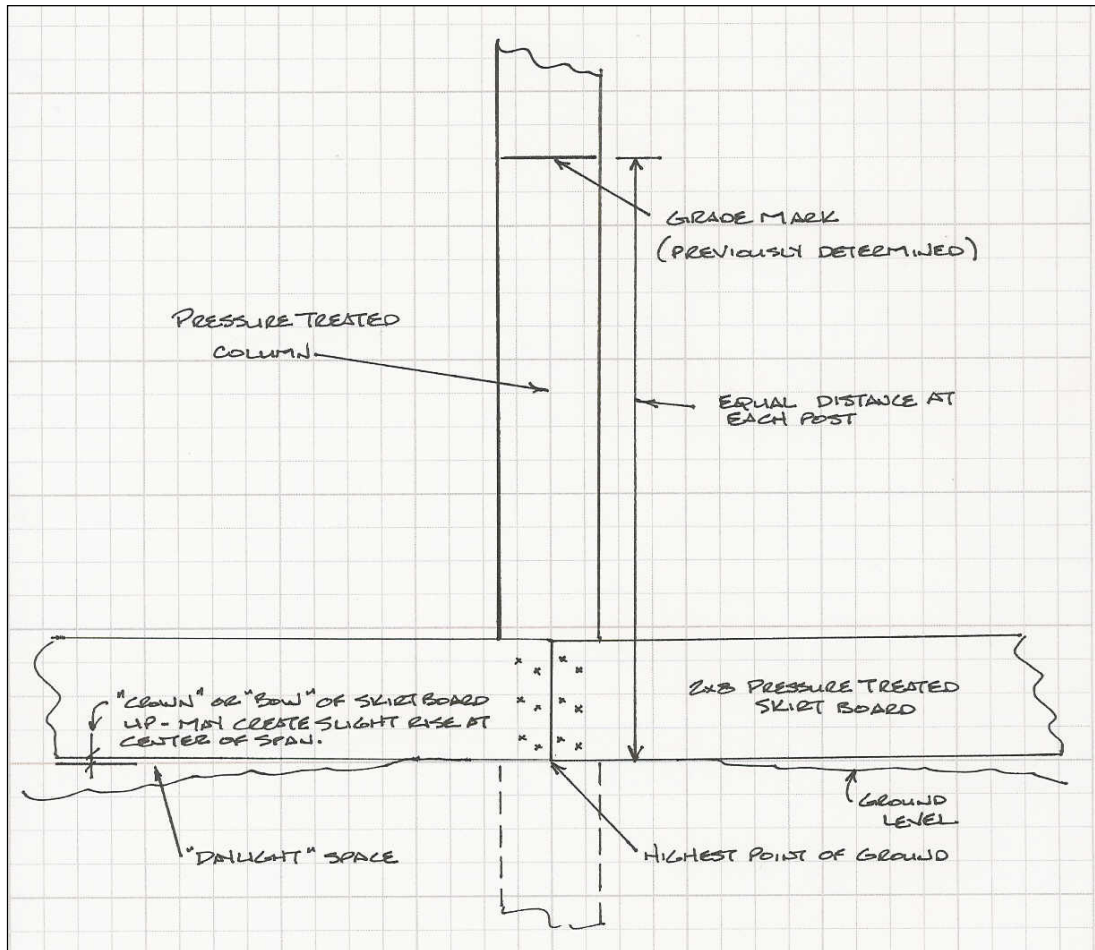 GRADE MARK
(PREVIOUSLY DETERMINED)
PRESSURE TREATED
COLUMN
EQUAL DISTANCE AT
EACH POST
"CROWN" OR "BOW" OF SKIRT BOARD
UP - MAY CREATE SLIGHT RISE AT
CENTER OF SPAN.
2x8 PRESSURE TREATED
SKIRT BOARD
GROUND
LEVEL
"DAYLIGHT" SPACE
HIGHEST POINT OF GROUND